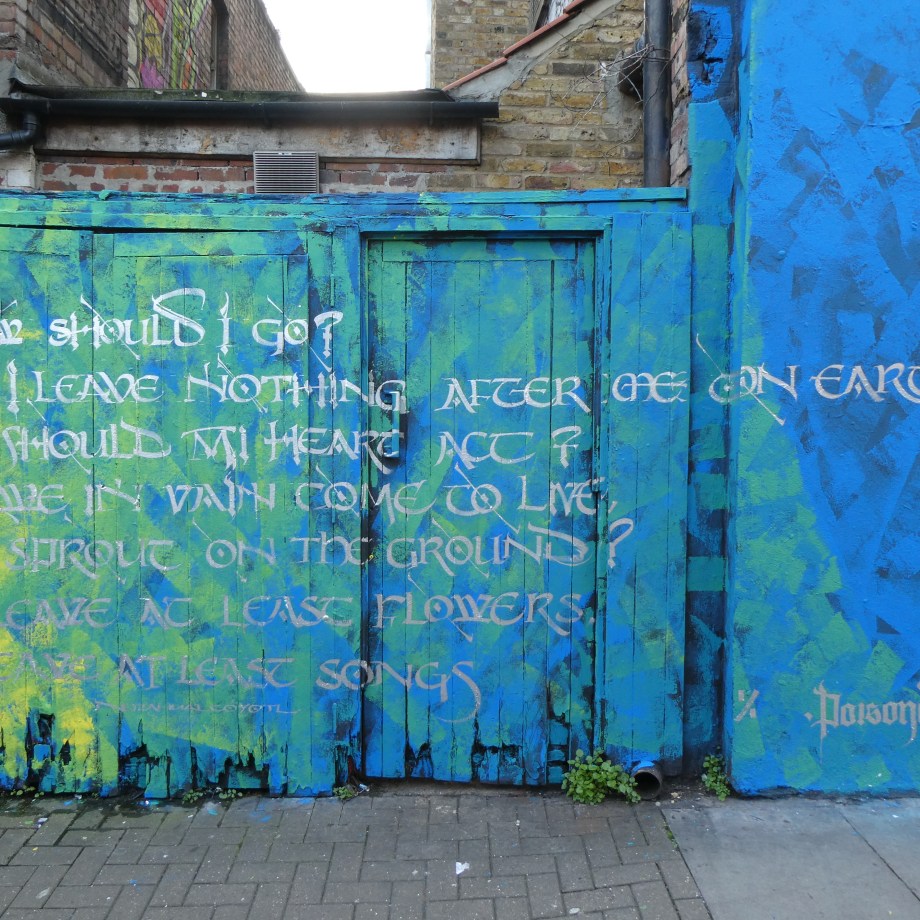 SHOULD I GO?
I LEAVE NOTHING AFTER ME ON EART
SHOULD MI HEART ACT?
WE IN VAIN COME TO LIVE,
SPROUT ON THE GROUND?
EAVE AT LEAST FLOWERS.
EAVE AT LEAST SONGS
POISON